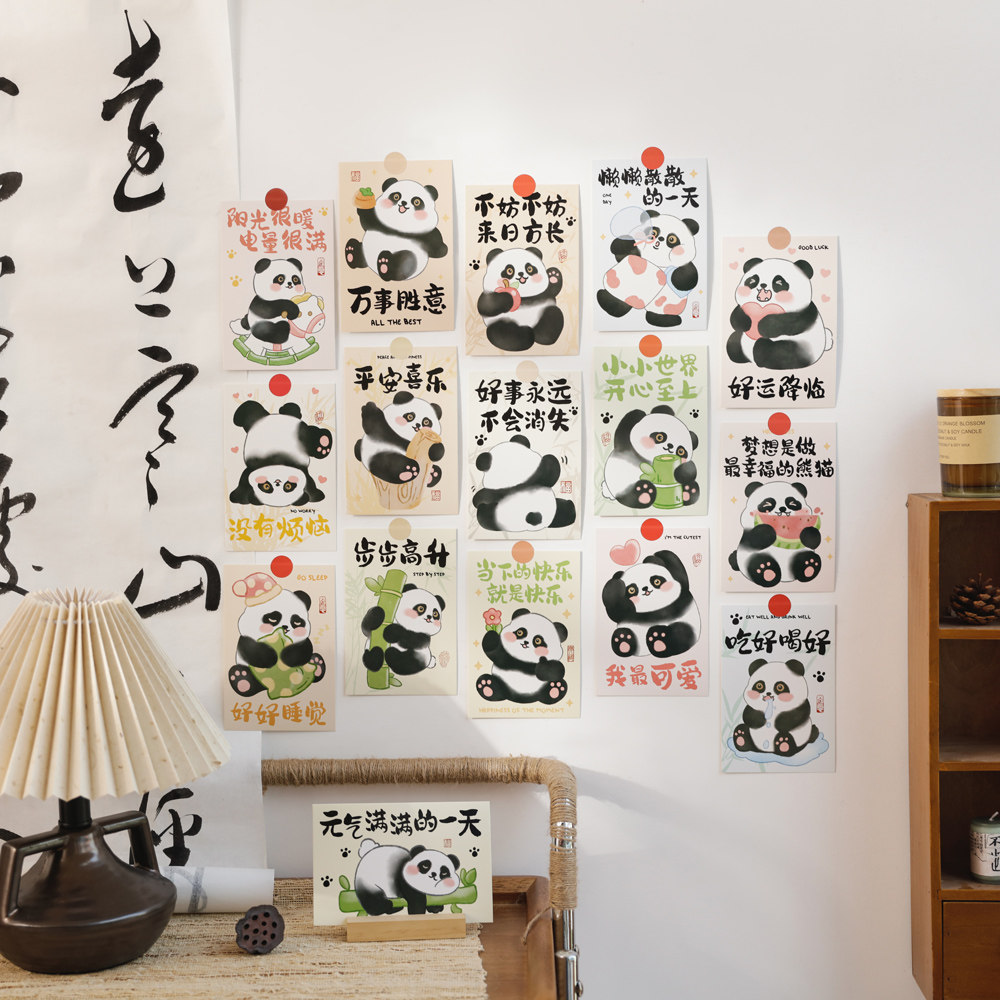 阳光很暖
电量很满
万事胜意
ALL THE BEST
不妨不妨
来日方长
懒懒散散
的一天
ONE
DAY
GOOD LUCK
好运降临
NO WORRY
没有烦恼
平安喜乐
好事永远
不会消失
小小世界
开心至上
梦想是做
最幸福的熊猫
GO SLEEP
好好睡觉
步步高升
STEP BY STEP
当下的快乐
就是快乐
HAPPINESS OF THE MOMENT
I'M THE CUTEST
我最可爱
EAT WELL AND DRINK WELL
吃好喝好
元气满满的一天
ORANGE BLOSSOM
SOY CANDLE